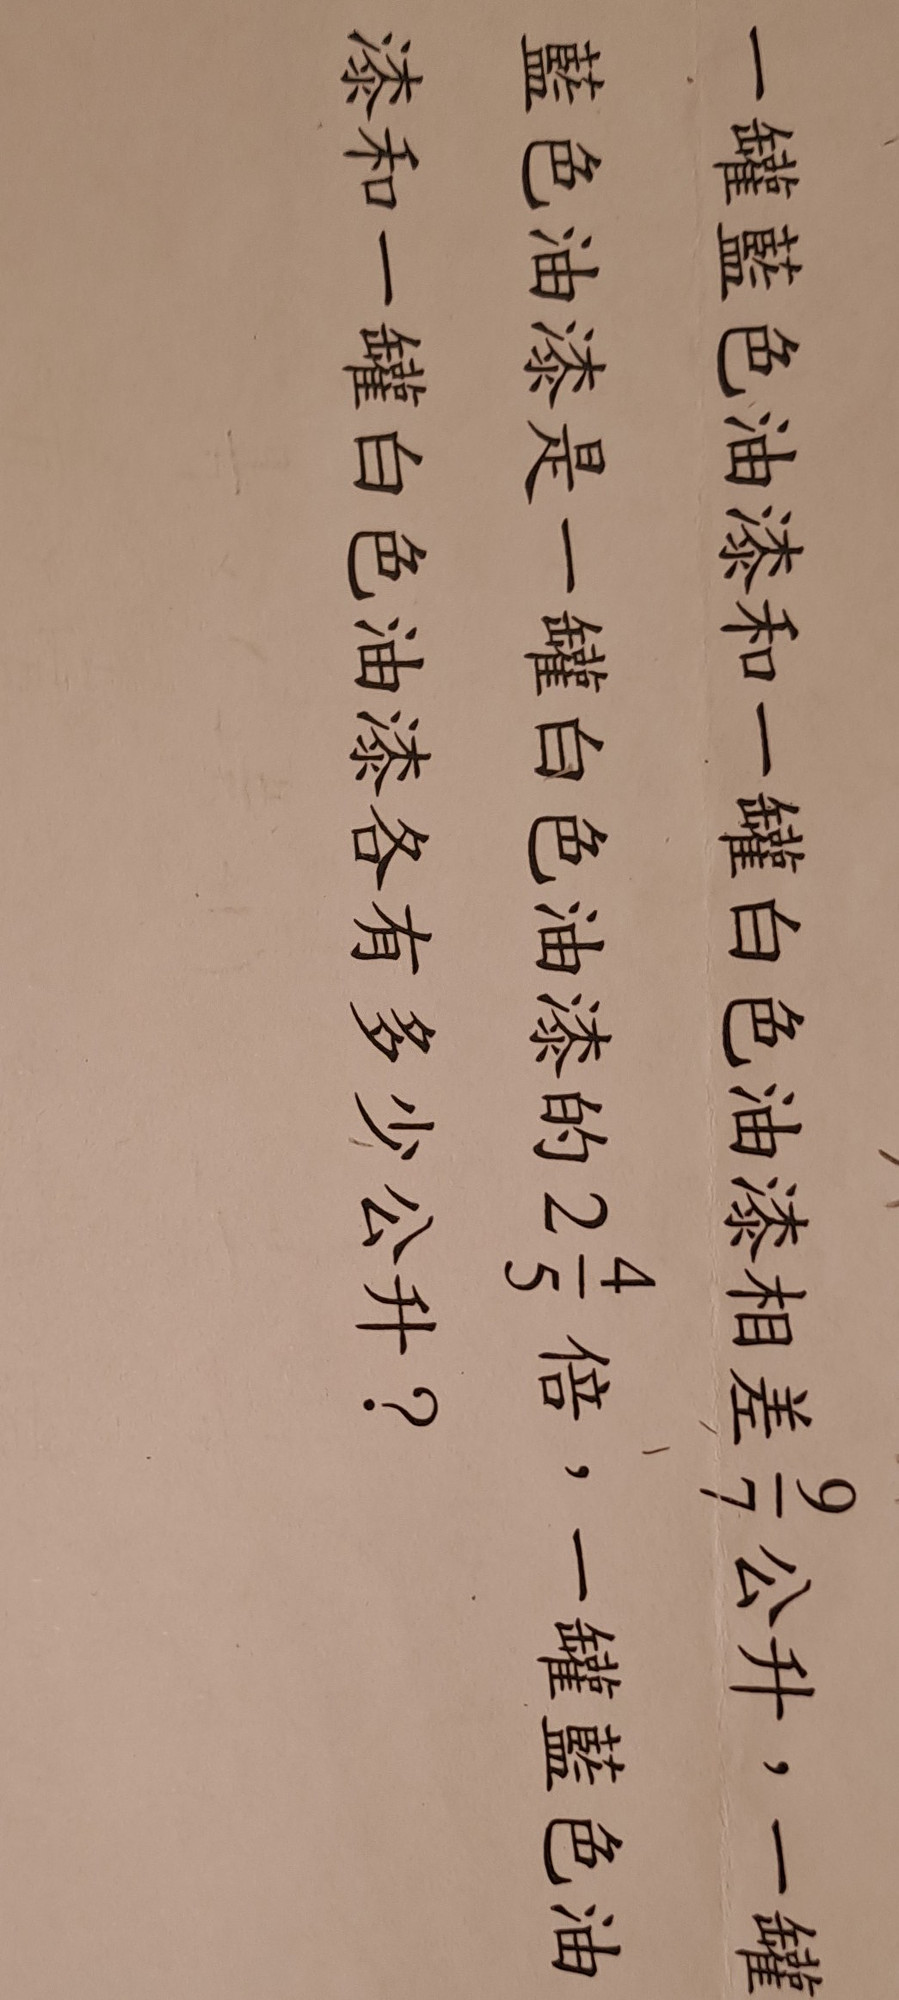 一罐藍色油漆和一罐白色油漆相差9/7公升，一罐
藍色油漆是一罐白色油漆的2 4/5倍，一罐藍色油
漆和一罐白色油漆各有多少公升？